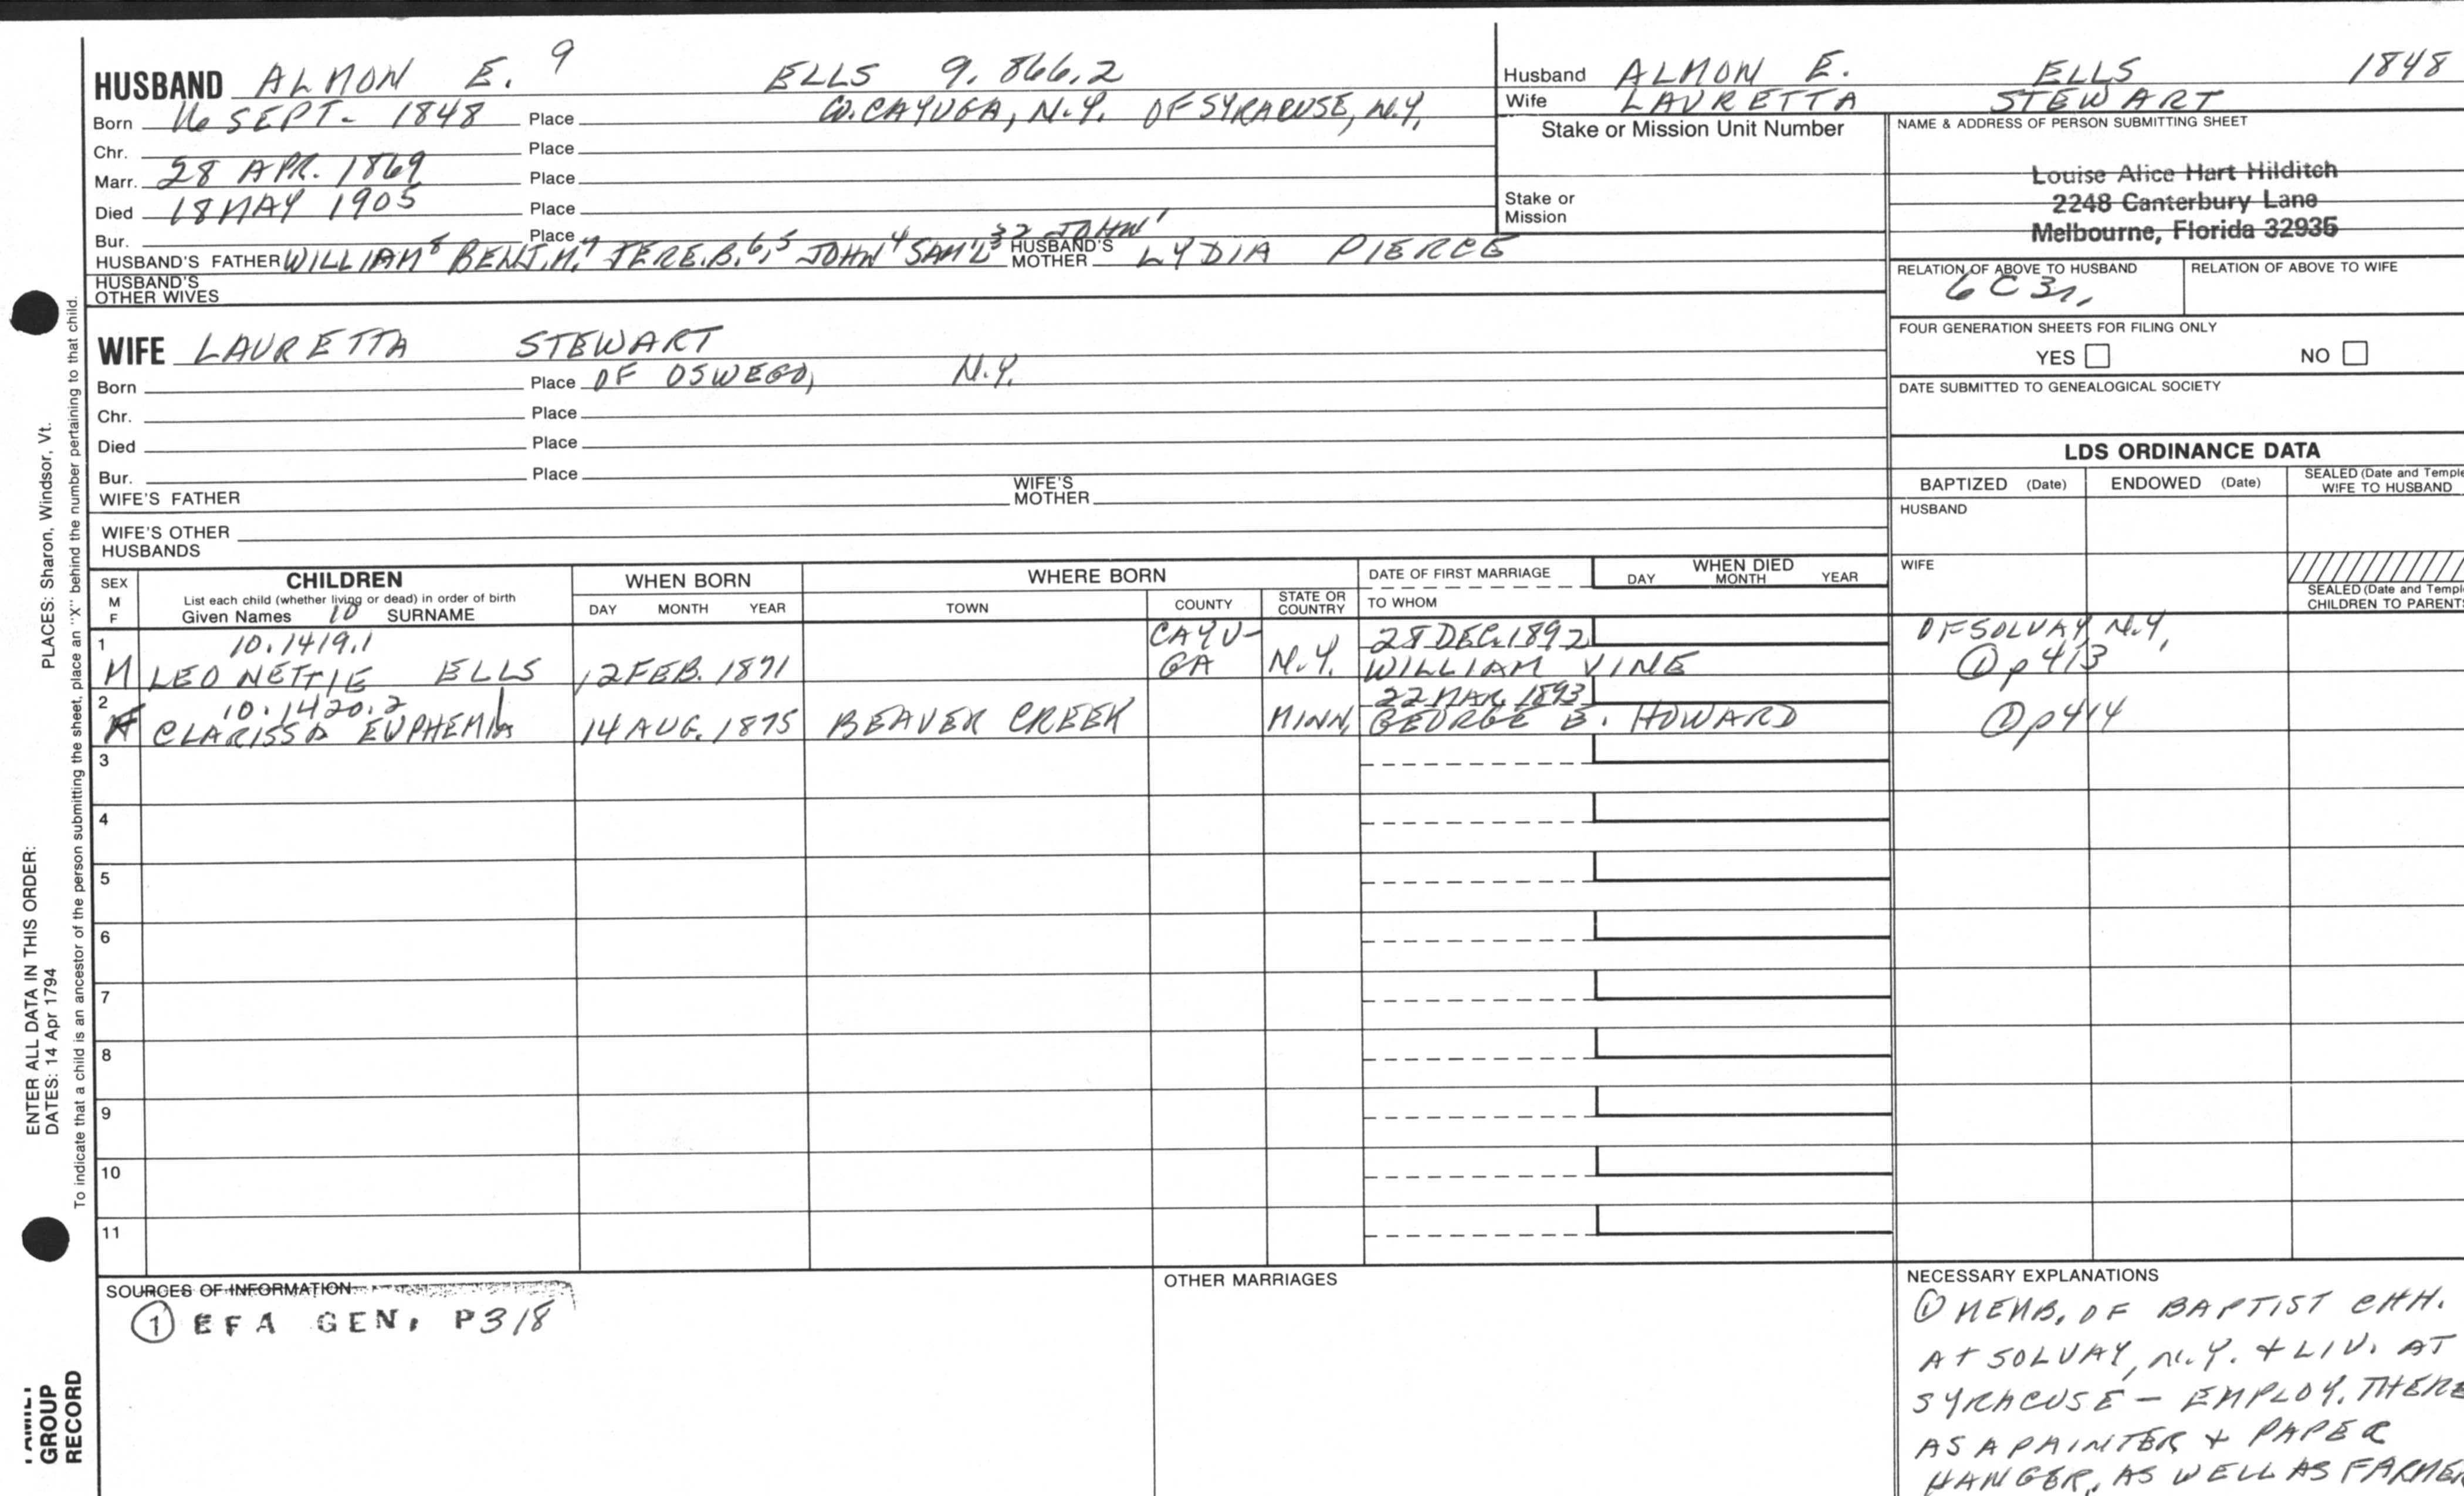 HUSBAND ALMON E. 9 ELLS 9.866.2
Born 16 SEPT. 1848 Place CO. CAYUGA, N.Y. OF SYRACUSE, N.Y.
Chr. Place
Marr. 28 APR. 1869 Place
Died 18 MAY 1905 Place
Bur. Place
HUSBAND'S FATHER WILLIAM 8 BENJ. H. 7 JERE. B. 6,5 JOHN 4 SAM'L 32 JOHN 1 HUSBAND'S MOTHER LYDIA PIERCE
HUSBAND'S OTHER WIVES
Husband ALMON E. ELLS 1848
Wife LAURETTA STEWART
Stake or Mission Unit Number
Stake or
Mission
NAME & ADDRESS OF PERSON SUBMITTING SHEET
Louise Alice Hart Hilditch
2248 Canterbury Lane
Melbourne, Florida 32935
RELATION OF ABOVE TO HUSBAND RELATION OF ABOVE TO WIFE
6C3r.
FOUR GENERATION SHEETS FOR FILING ONLY
YES NO
DATE SUBMITTED TO GENEALOGICAL SOCIETY
WIFE LAURETTA STEWART
Born Place OF OSWEGO, N.Y.
Chr. Place
Died Place
Bur. Place
WIFE'S FATHER WIFE'S MOTHER
WIFE'S OTHER
HUSBANDS
LDS ORDINANCE DATA
BAPTIZED (Date) ENDOWED (Date) SEALED (Date and Temple
WIFE TO HUSBAND
HUSBAND
WIFE
SEALED (Date and Templ
CHILDREN TO PARENTS
SEX
M
F
CHILDREN
List each child (whether living or dead) in order of birth
Given Names 10 SURNAME
WHEN BORN
DAY MONTH YEAR
WHERE BORN
TOWN COUNTY STATE OR COUNTRY
DATE OF FIRST MARRIAGE
TO WHOM
WHEN DIED
DAY MONTH YEAR
1 10.1419.1 CAYU- 28 DEC. 1892 OF SOLVAY, N.Y.
M LEO NETTIE ELLS 12 FEB. 1871 GA N.Y. WILLIAM VINE ① p 413
2 10.1420.2 22 MAR. 1893
F CLARISSA EUPHEMIA 14 AUG. 1875 BEAVER CREEK MINN. GEORGE B. HOWARD ① p 414
3
4
5
6
7
8
9
10
11
SOURCES OF INFORMATION
① EFA GEN, P318
OTHER MARRIAGES
NECESSARY EXPLANATIONS
① MEMB. OF BAPTIST CHH.
AT SOLVAY, N.Y. + LIV. AT
SYRACUSE - EMPLOY. THERE
AS A PAINTER + PAPER
HANGER, AS WELL AS FARMER
PLACES: Sharon, Windsor, Vt.
ENTER ALL DATA IN THIS ORDER:
DATES: 14 Apr 1794
To indicate that a child is an ancestor of the person submitting the sheet, place an "X" behind the number pertaining to that child.
FAMILY
GROUP
RECORD